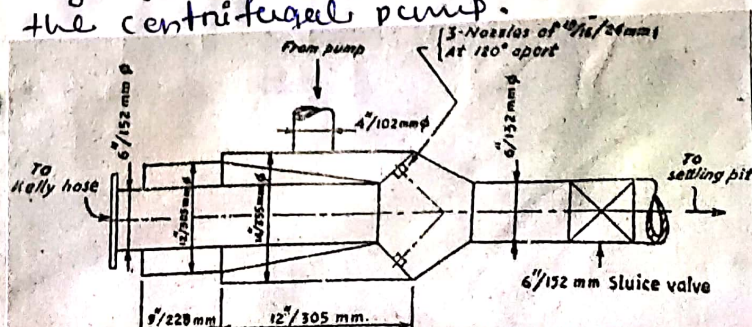 the centrifugal pump.
3-Nozzles of 15/16"/24mm
At 120° apart
From pump
4"/102mmφ
6"/152 mm φ
6"/152 mmφ
To
Kelly hose
12"/305mmφ
14"/355mmφ
To
settling pit
6"/152 mm Sluice valve
9"/228mm
12"/305 mm.